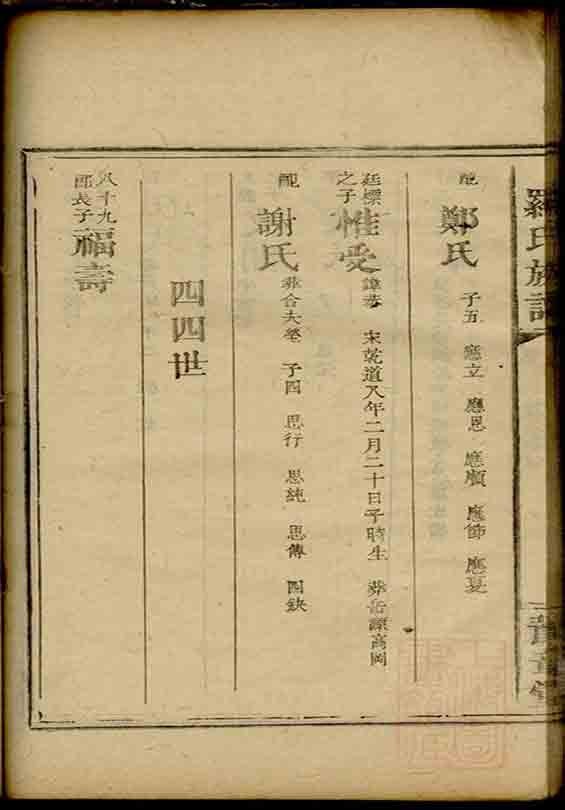 羅氏族譜
豫章堂
配 鄭氏 子五 應立 應恩 應順 應節 應夏
廷標之子 惟受 諱 宋乾道八年二月二十日子時生 葬 源高岡
配 謝氏 葬合夫塋 子四 思行 思純 思傳 四缺
四四世
八十九郎長子 福壽